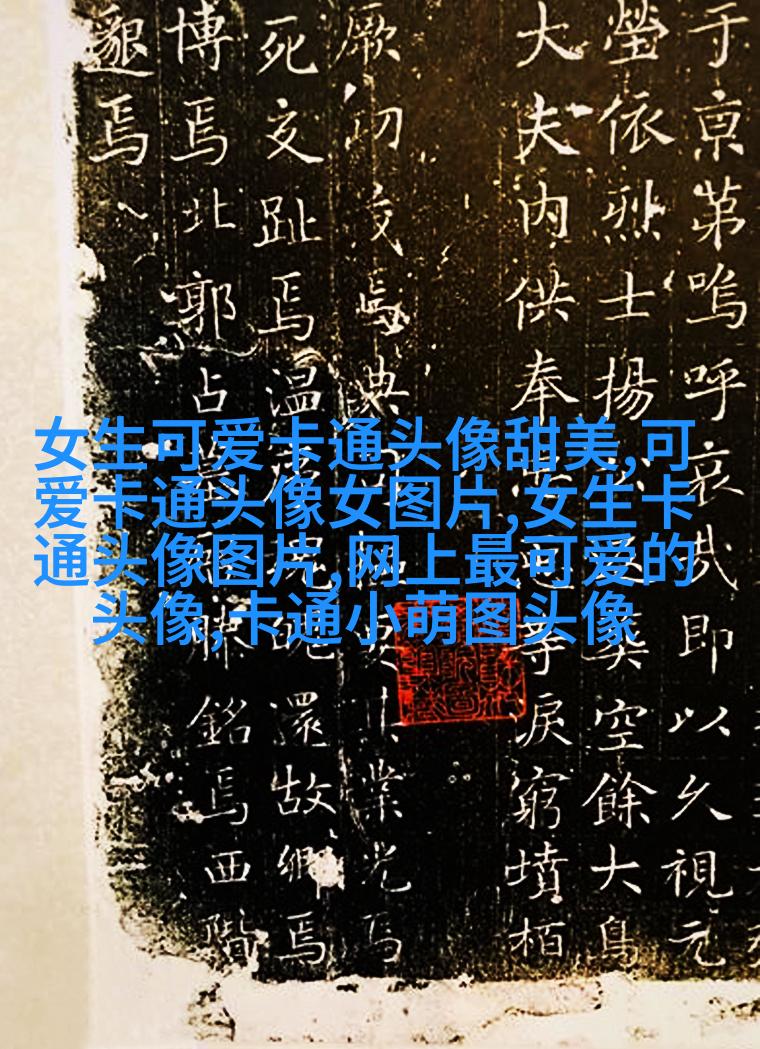 女生可爱卡通头像甜美,可
爱卡通头像女图片,女生卡
通头像图片,网上最可爱的
头像,卡通小萌图头像
于京第嗚呼哀哉即以久視元
塋依烈士揚矣空餘大鳥
大夫内供奉等淚窮墳栢
厥焉典業光焉
死交趾焉温還故鄉焉
博焉北郭占銘焉西階
邈焉